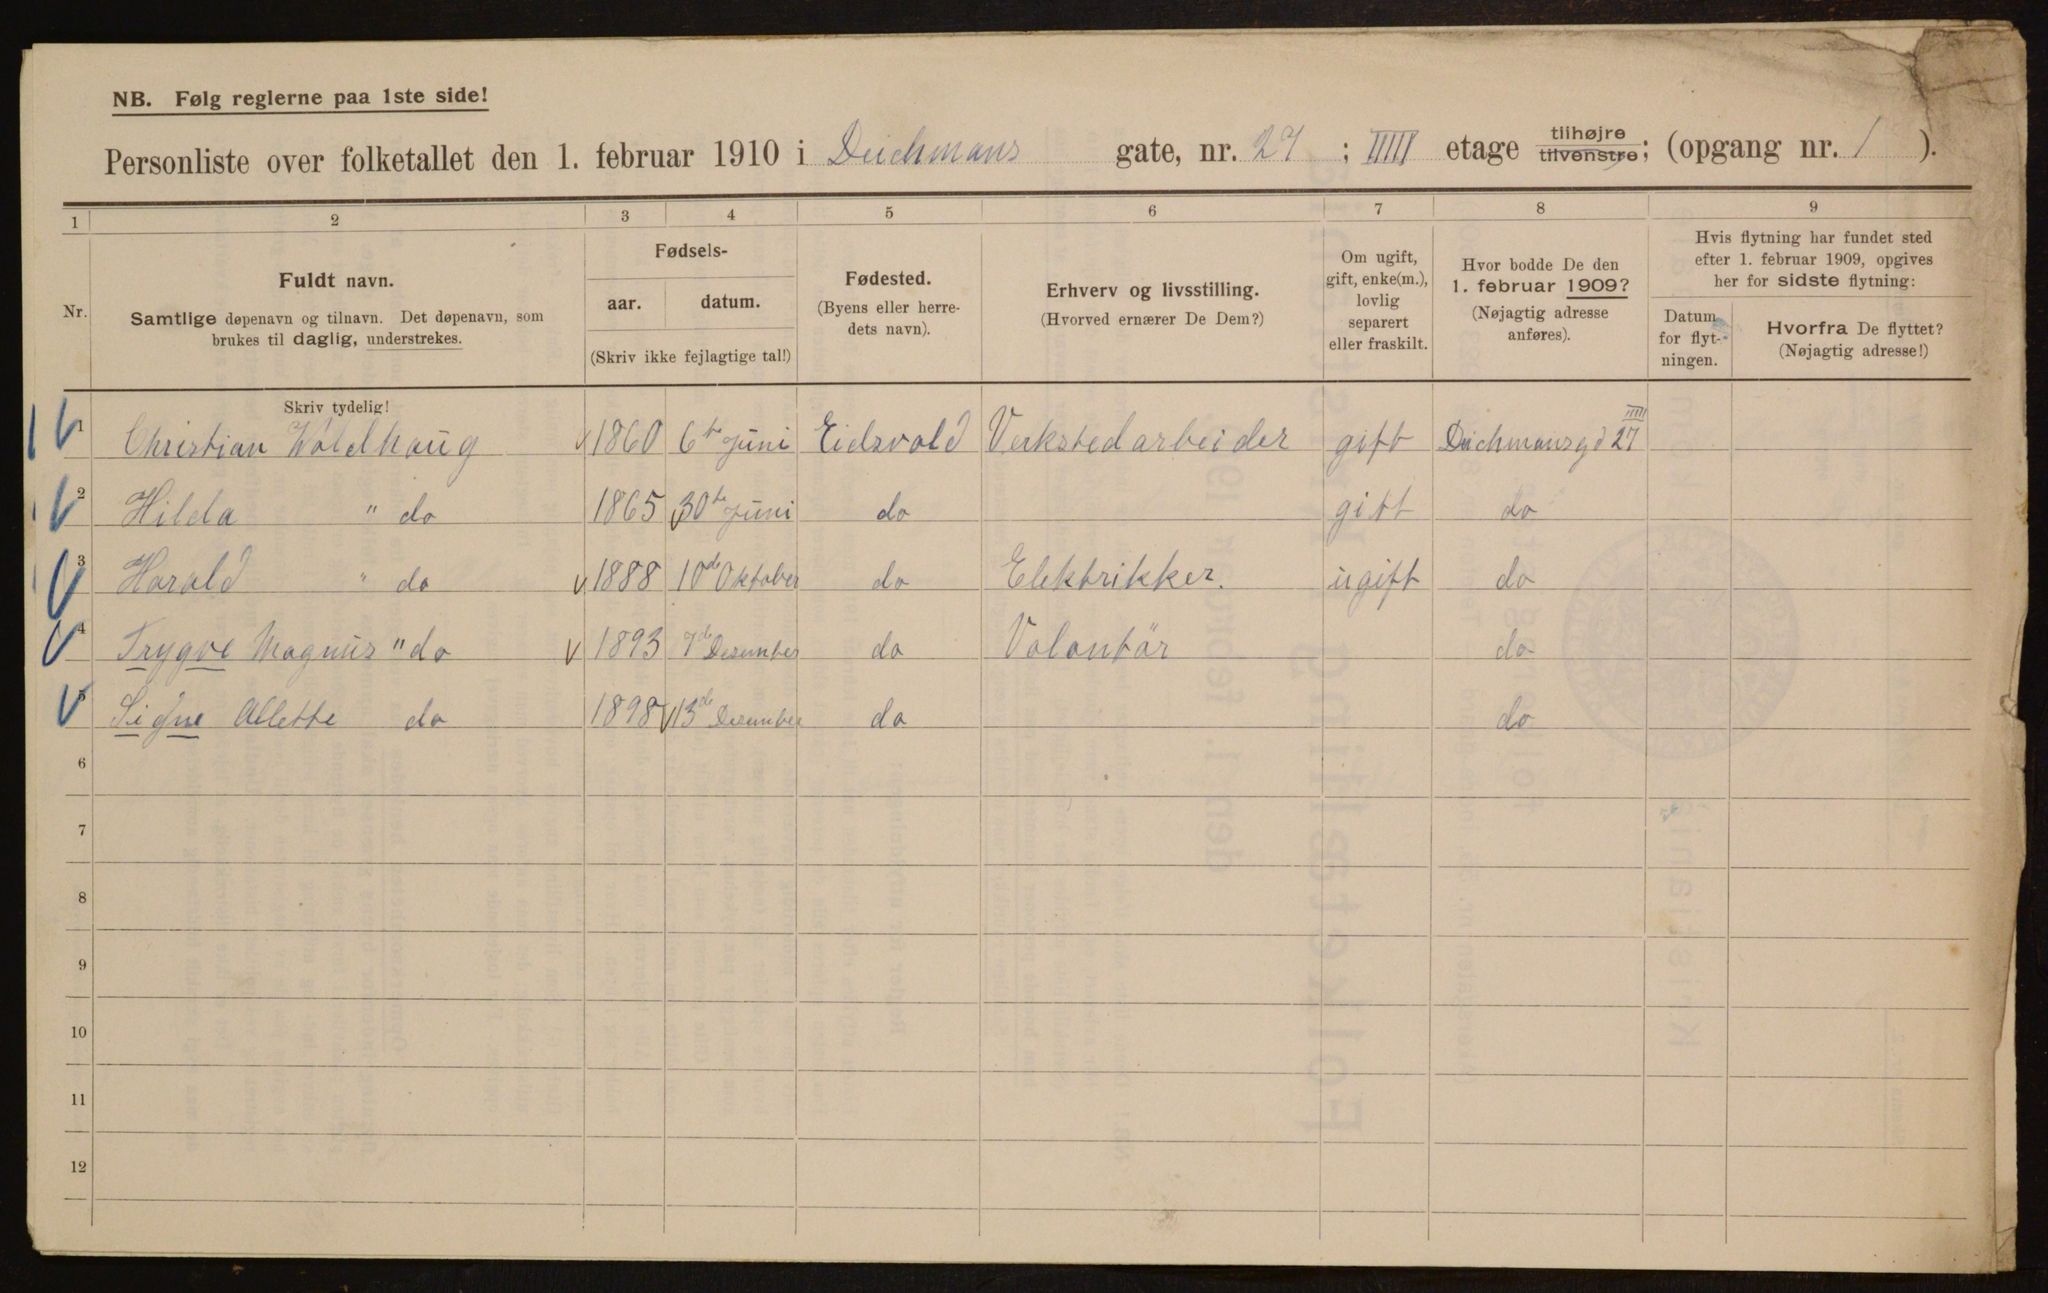 NB. Følg reglerne paa 1ste side!
Personliste over folketallet den 1. februar 1910 i Deichmans gate, nr. 27 ; IIIII etage tilhøjre tilvenstre; (opgang nr. 1 ).
1 2 3 4 5 6 7 8 9
Nr.
Fuldt navn.
Samtlige døpenavn og tilnavn. Det døpenavn, som
brukes til daglig, understrekes.
Skriv tydelig!
Fødsels-
aar. datum.
(Skriv ikke fejlagtige tal!)
Fødested.
(Byens eller herre-
dets navn).
Erhverv og livsstilling.
(Hvorved ernærer De Dem?)
Om ugift,
gift, enke(m.),
lovlig
separert
eller fraskilt.
Hvor bodde De den
1. februar 1909?
(Nøjagtig adresse
anføres).
Hvis flytning har fundet sted
efter 1. februar 1909, opgives
her for sidste flytning:
Datum
for flyt-
ningen.
Hvorfra De flyttet?
(Nøjagtig adresse!)
1 Christian Woldhaug 1860 6te Juni Eidsvold Verkstedarbeider gift Deichmansgd 27 IIIII
2 Hilda " do 1865 30te Juni do gift do
3 Harald " do 1888 10de Oktober do Elektrikker. ugift do
4 Trygve Magnus " do 1893 7de Desember do Volontär do
5 Signe Alette do 1898 13de Desember do do
6
7
8
9
10
11
12